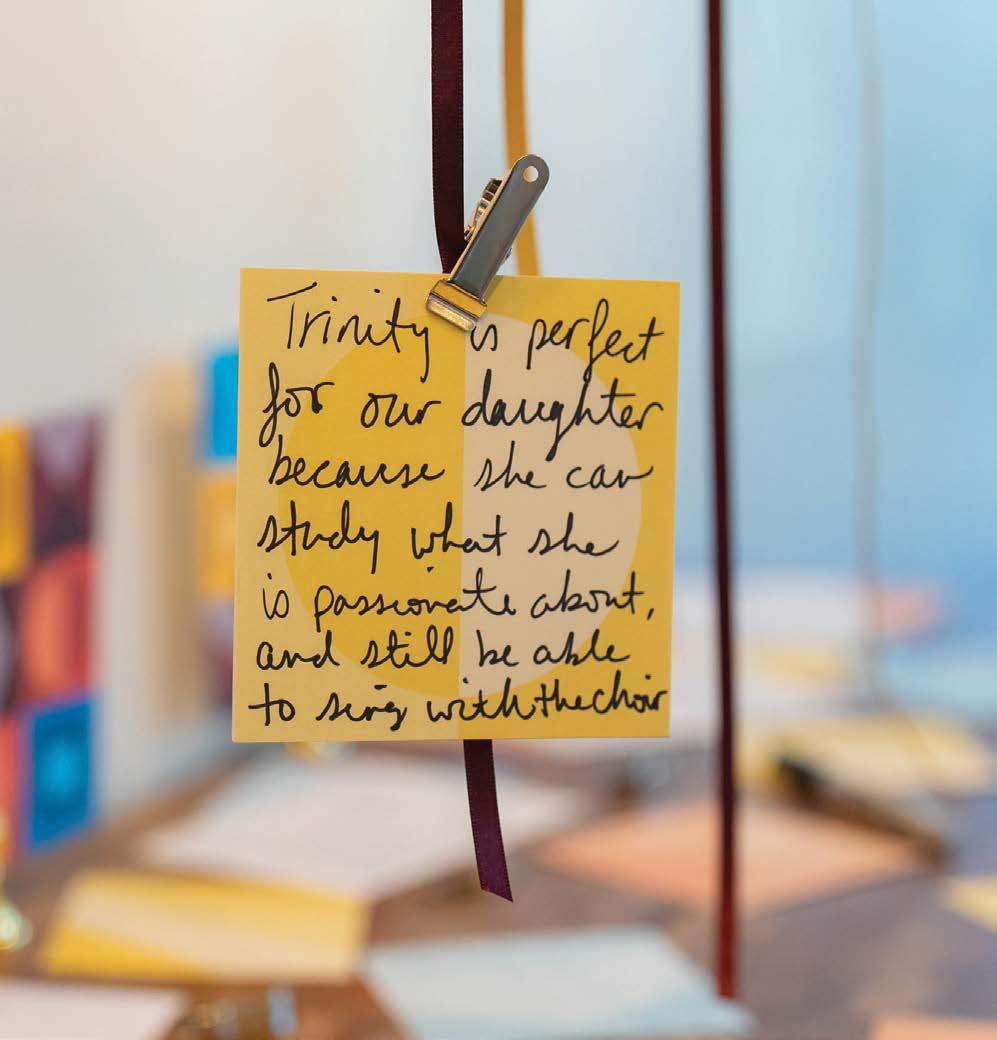 Trinity is perfect
for our daughter
because she can
study what she
is passionate about,
and still be able
to sing with the choir